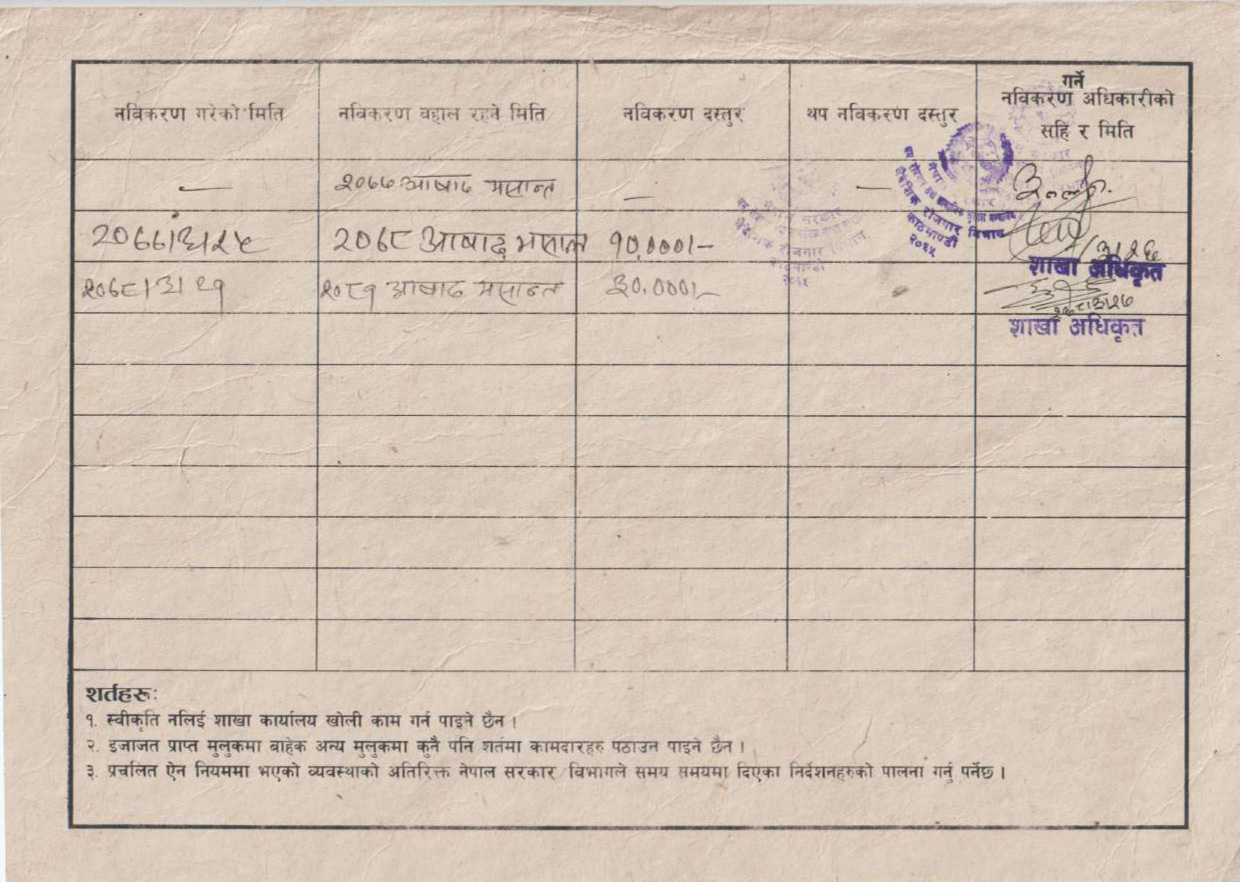 नविकरण गरेको मिति
नविकरण वहाल रहने मिति
नविकरण दस्तुर
थप नविकरण दस्तुर
गर्ने
नविकरण अधिकारीको
सहि र मिति
—
२०६७ आषाढ मसान्त
—
—
२०६६।३।२५
२०६८ आषाढ मसान्त
१०,०००।-
शाखा अधिकृत
२०६८।३।२१
२०८१ आषाढ मसान्त
३०,०००।-
शाखा अधिकृत
वैदेशिक रोजगार विभाग
काठमाण्डौ
२०६५
शर्तहरु:
१. स्वीकृति नलिई शाखा कार्यालय खोली काम गर्न पाइने छैन ।
२. इजाजत प्राप्त मुलुकमा बाहेक अन्य मुलुकमा कुनै पनि शर्तमा कामदारहरु पठाउन पाइने छैन ।
३. प्रचलित ऐन नियममा भएको व्यवस्थाको अतिरिक्त नेपाल सरकार/विभागले समय समयमा दिएका निर्देशनहरुको पालना गर्नु पर्नेछ ।